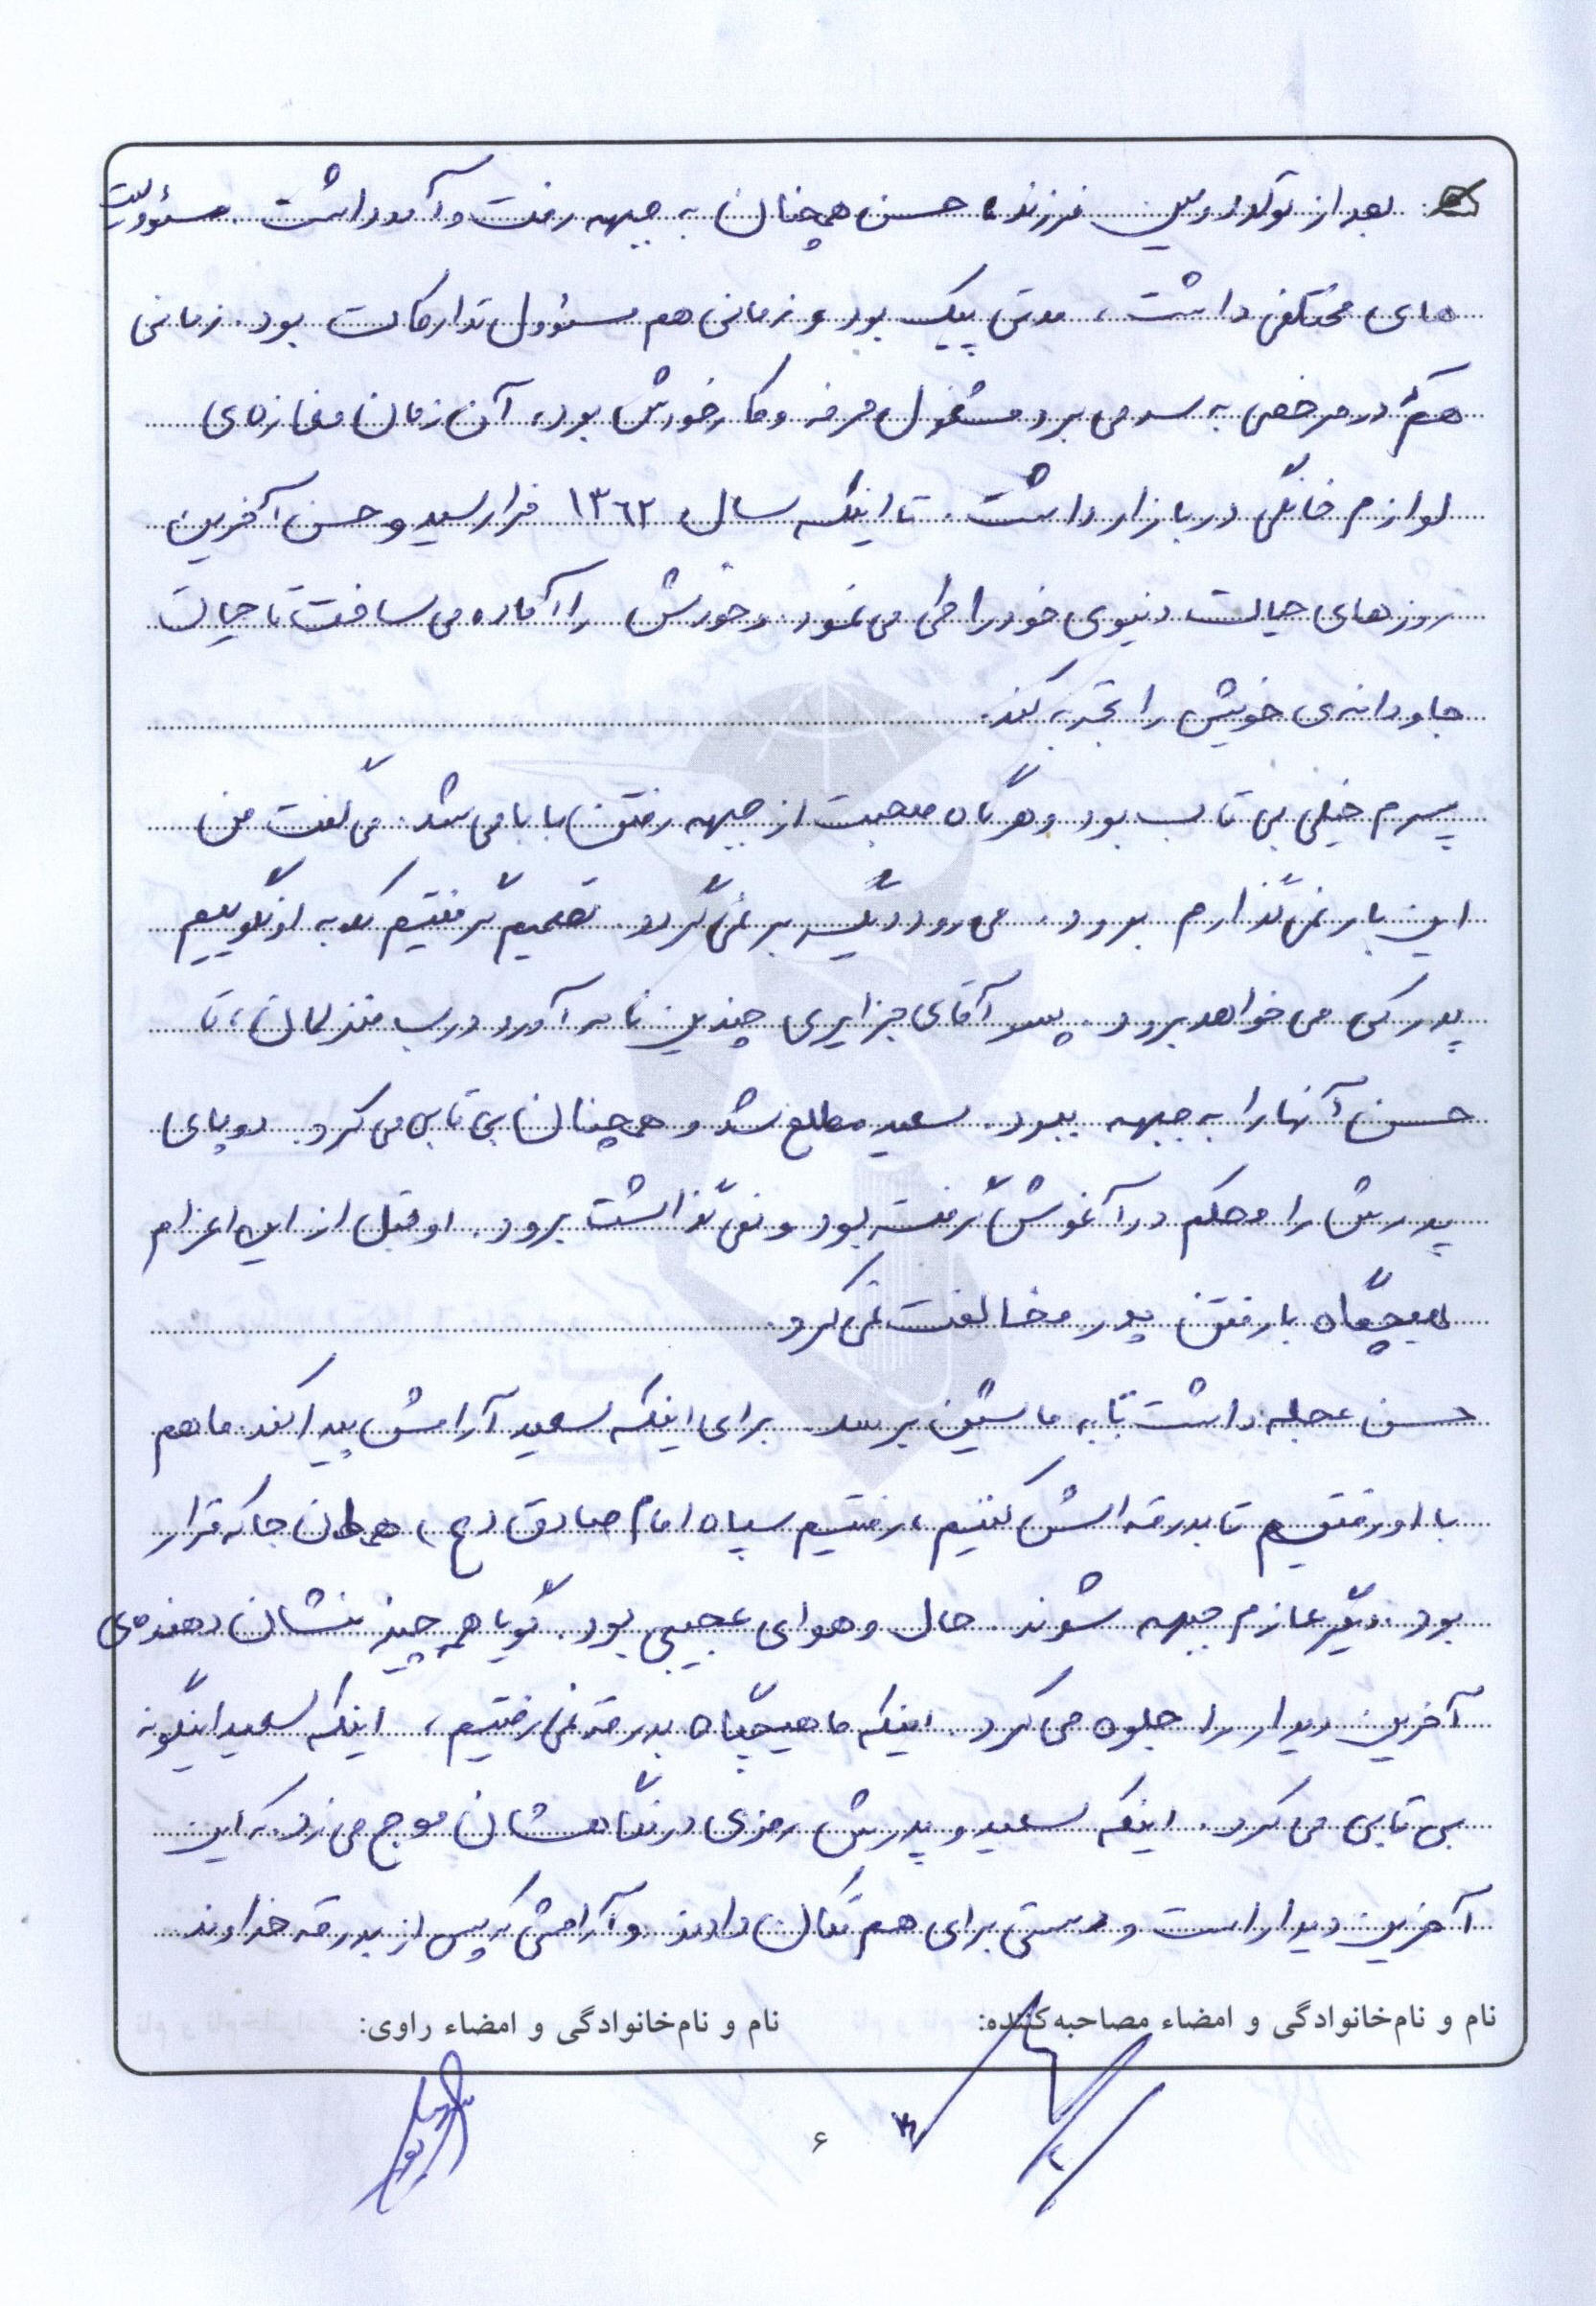 بعد از تولد دومین فرزند، حسن همچنان به جبهه رفت و آمد داشت. مسؤولیت
های مختلفی داشت، مدتی پیک بود و زمانی هم مسؤول تدارکات بود. زمانی
هم که در مرخصی به سر می برد مشغول حرفه و کار خودش بود، آن زمان مغازه‌ی
لوازم خانگی در بازار داشت. تا اینکه سال ۱۳۶۲ فرا رسید و حسن آخرین
روزهای حیات دنیوی خود را طی می نمود و خودش را آماده می ساخت تا حیات
جاودانه‌ی خویش را تجربه کند.
پسرم خیلی بی تاب بود و هرگاه صحبت از جبهه رفتن بابا می شد. می گفت من
این بار نمی گذارم برود. می رود دیگر بر نمی گردد. تصمیم گرفتیم که به او نگوییم
پدر کی می خواهد برود. پسر آقای جزایری چندین نامه آورد درب منزلمان، تا
حسن آنها را به جبهه ببرد. سعید مطلع شد و همچنان بی تابی می کرد. دو پای
پدرش را محکم در آغوش گرفته بود و نمی گذاشت برود. او قبل از این اعزام
هیچگاه با رفتن پدر مخالفت نمی کرد.
حسن عجله داشت تا به ماشین برسد. برای اینکه سعید آرامش پیدا کند. ما هم
با او رفتیم تا بدرقه اش کنیم، رفتیم سپاه امام صادق (ع)، همان جا که قرار
بود دیگر عازم جبهه شوند. حال و هوای عجیبی بود. گویا همه چیز نشان دهنده‌ی
آخرین دیدار را جلوه می کرد. اینکه ما هیچگاه بدرقه نمی رفتیم، اینکه سعید اینگونه
بی تابی می کرد. اینکه سعید و پدرش رمزی در نگاهشان موج می زد. که این
آخرین دیدار است و دستی برای هم تکان دادند و آرامشی که پس از بدرقه خداوند
نام و نام‌خانوادگی و امضاء مصاحبه‌کننده: نام و نام‌خانوادگی و امضاء راوی:
۶